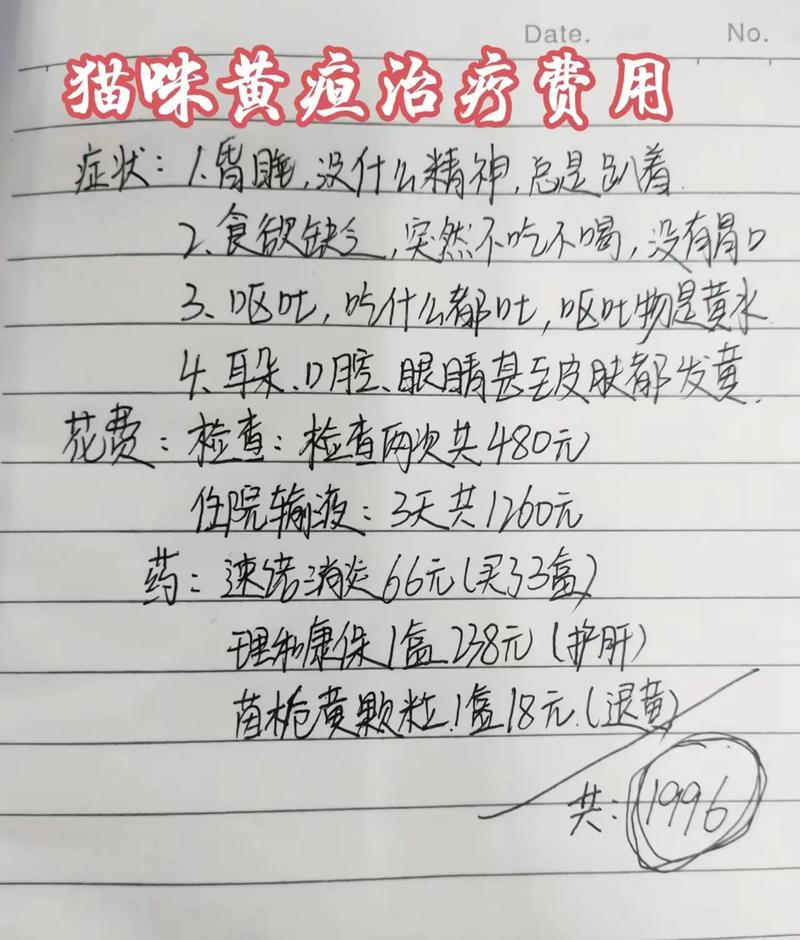 Date.
No.
猫咪黄疸治疗费用
症状：1.昏睡,没什么精神,总是趴着.
2、食欲缺乏,突然不吃不喝,没有胃口
3、呕吐,吃什么都吐,呕吐物是黄水
4、耳朵、口腔、眼睛甚至皮肤都发黄.
花费：检查：检查两次共480元
住院输液：3天共1260元
药：速诺消炎66元(买了3盒)
理和康保1盒238元(护肝)
茵栀黄颗粒.1盒18元.(退黄)
共:1996